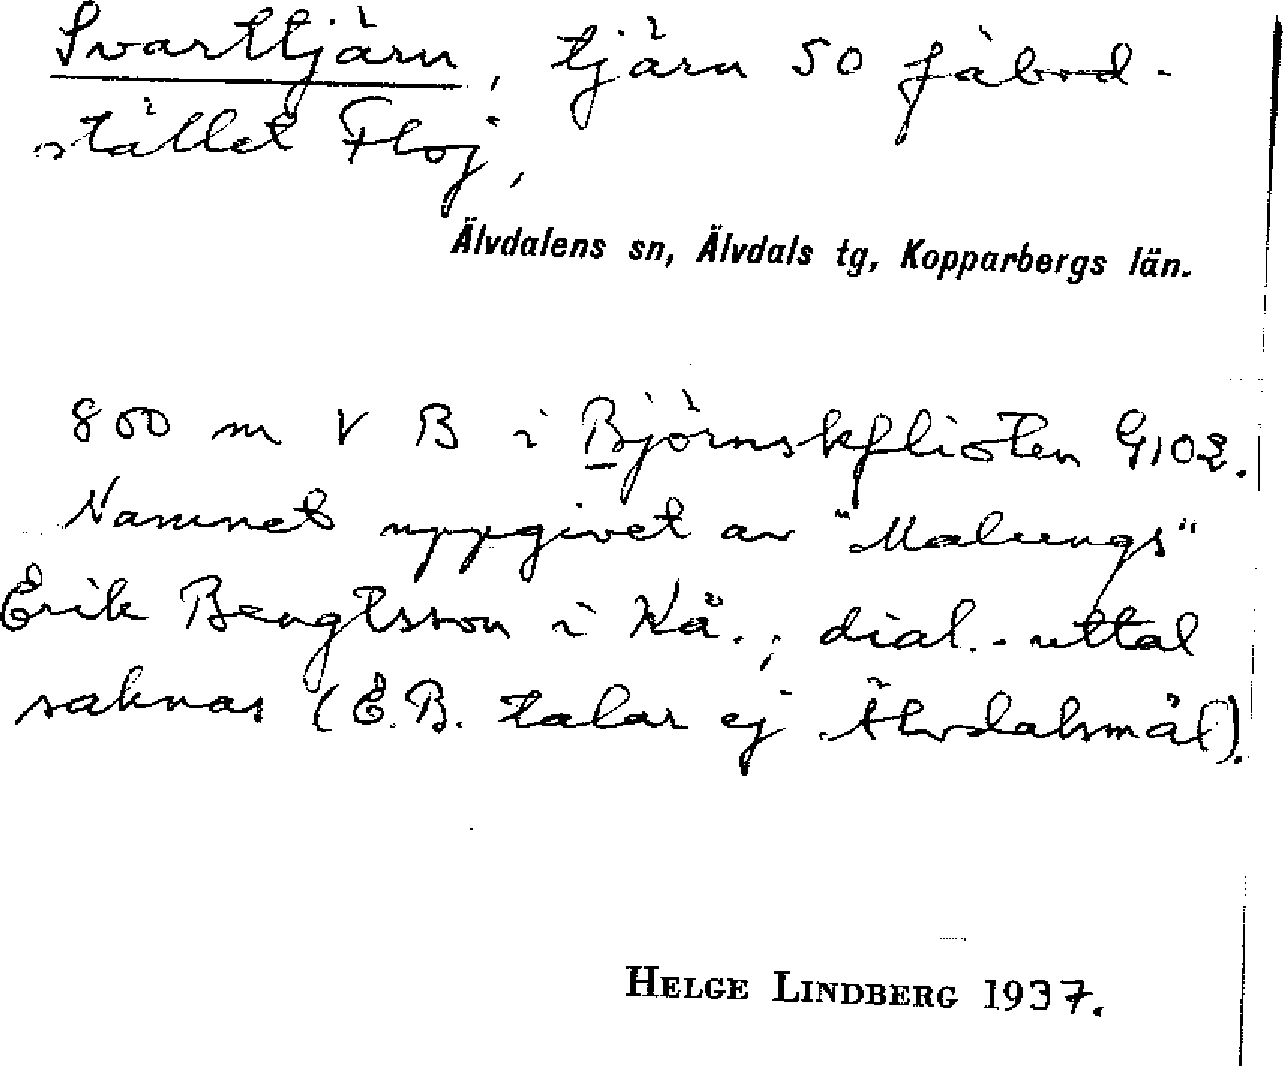 Svarttjärn, tjärn SO fäbod-
stället Floj,
Älvdalens sn, Älvdals tg, Kopparbergs län.
800 m V B i Björnskflioten G102.
Namnet uppgivet av "Malungs"
Erik Bengtsson i Nä.; dial.-uttal
saknas (E.B. talar ej Älvdalsmål).
HELGE LINDBERG 1937.